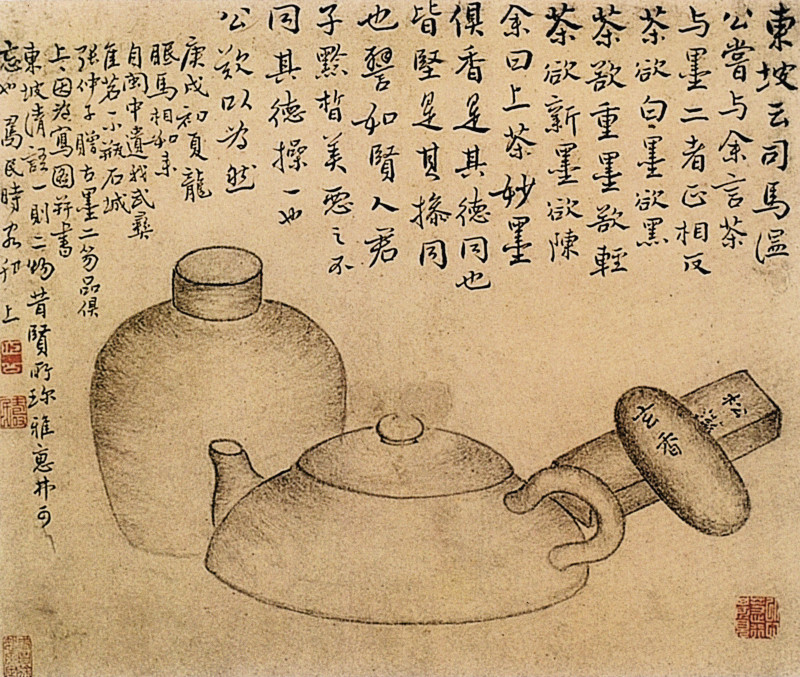 東坡云司馬溫
公嘗与余言茶
与墨二者正相反
茶欲白墨欲黑
茶欲重墨欲輕
茶欲新墨欲陳
余曰上茶妙墨
俱香是其德同也
皆堅是其操同
也譬如賢人君
子黔皙美惡之不
同其德操一也
公歎以為然
庚戌初夏龍
眠馬相如来
自閩中遺我武彝
雀茗一小瓶石城
張仲子贈古墨二笏品俱
上因為寫圖并書
東坡清語一則二物昔賢所珍雅惠可
忘也 壽民時客邗上
玄香